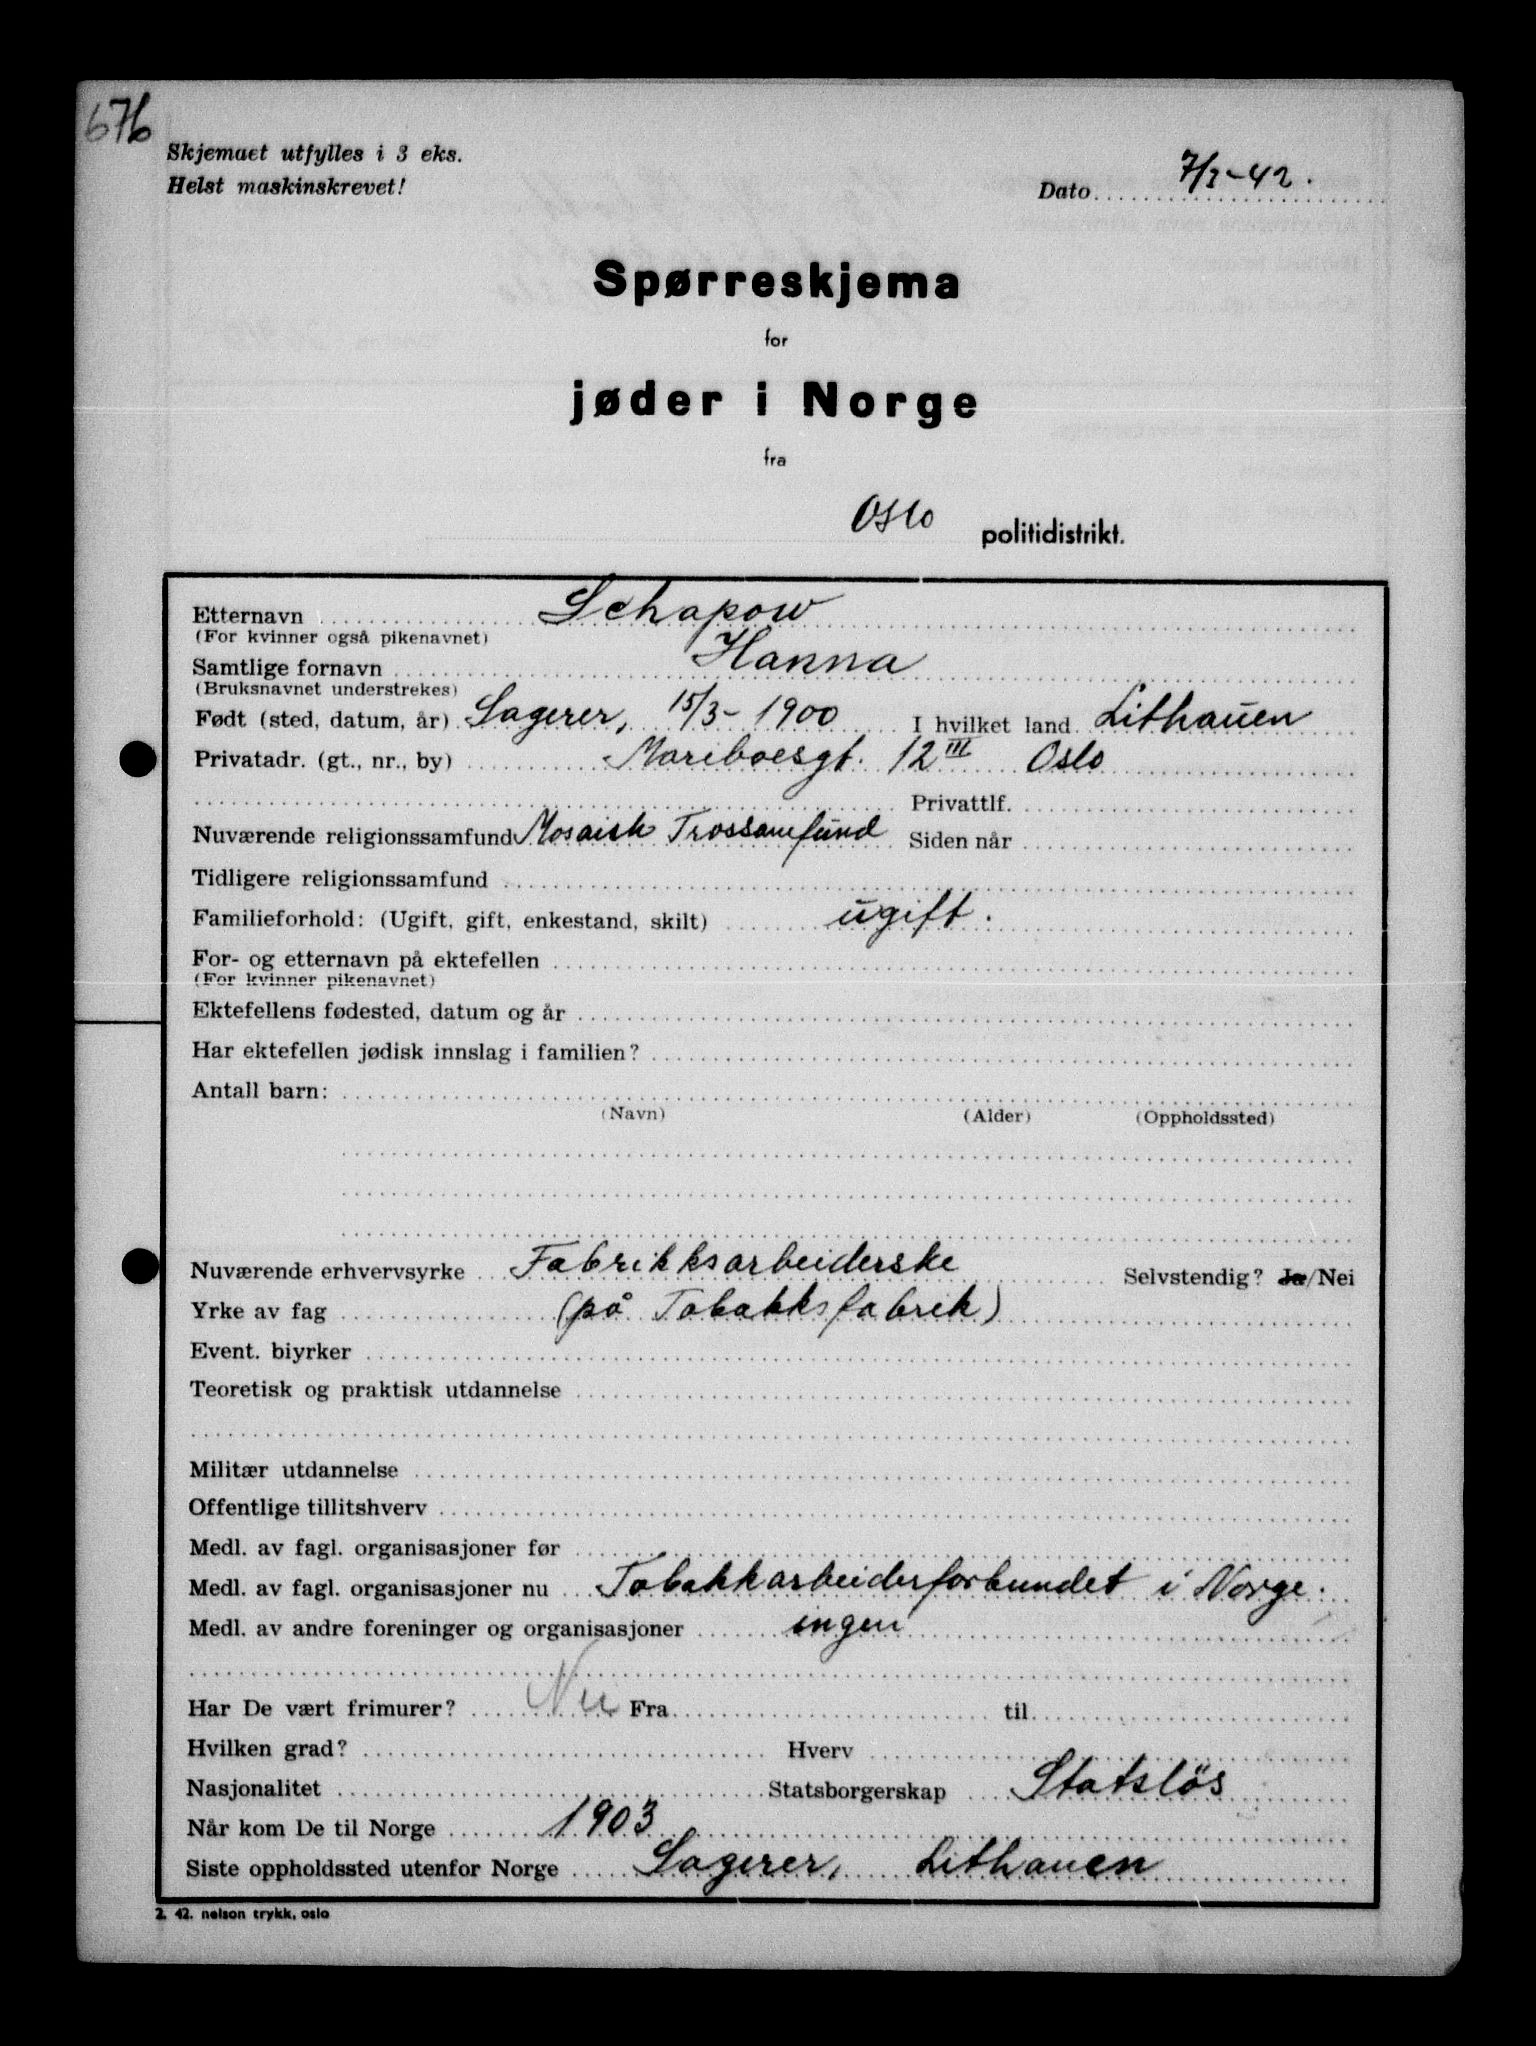 676
Skjemaet utfylles i 3 eks.
Helst maskinskrevet!
Dato 7/3-42.
Spørreskjema
for
jøder i Norge
fra
Oslo politidistrikt.
Etternavn Schapow
(For kvinner også pikenavnet)
Samtlige fornavn Hanna
(Bruksnavnet understrekes)
Født (sted, datum, år) Sagerer, 15/3-1900 I hvilket land Lithauen
Privatadr. (gt., nr., by) Mariboesgt. 12 III Oslo
Privattlf.
Nuværende religionssamfund Mosaisk Trossamfund Siden når
Tidligere religionssamfund
Familieforhold: (Ugift, gift, enkestand, skilt) ugift.
For- og etternavn på ektefellen
(For kvinner pikenavnet)
Ektefellens fødested, datum og år
Har ektefellen jødisk innslag i familien?
Antall barn:
(Navn) (Alder) (Oppholdssted)
Nuværende erhvervsyrke Fabrikksarbeiderske Selvstendig? Ja/Nei
Yrke av fag (på Tobakksfabrik)
Event. biyrker
Teoretisk og praktisk utdannelse
Militær utdannelse
Offentlige tillitshverv
Medl. av fagl. organisasjoner før
Medl. av fagl. organisasjoner nu Tobakkarbeiderforbundet i Norge.
Medl. av andre foreninger og organisasjoner ingen
Har De vært frimurer? Nei Fra til
Hvilken grad? Hverv
Nasjonalitet Statsborgerskap Statsløs
Når kom De til Norge 1903
Siste oppholdssted utenfor Norge Sagerer, Lithauen
2. 42. nelson trykk, oslo